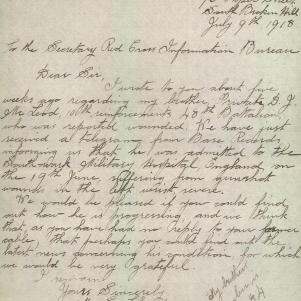 South Broken Hill
July 9th 1918
To the Secretary Red Cross Information Bureau
Dear Sir,
I wrote to you about five
weeks ago regarding my brother, Private D. J.
McLeod, 11th reinforcements, 48th Battalion
who was reported wounded. We have just
received a telegram from Base Records
informing us that he was admitted to the
Southwark Military Hospital England, on
the 19th June, suffering from gunshot
wounds in the left wrist severe.
We would be pleased if you could find
out how he is progressing, and we think
that, as you have had no reply to your former
cable, that perhaps you could find out the
latest news concerning his condition, for which
we would be very grateful.
I remain
Yours Sincerely